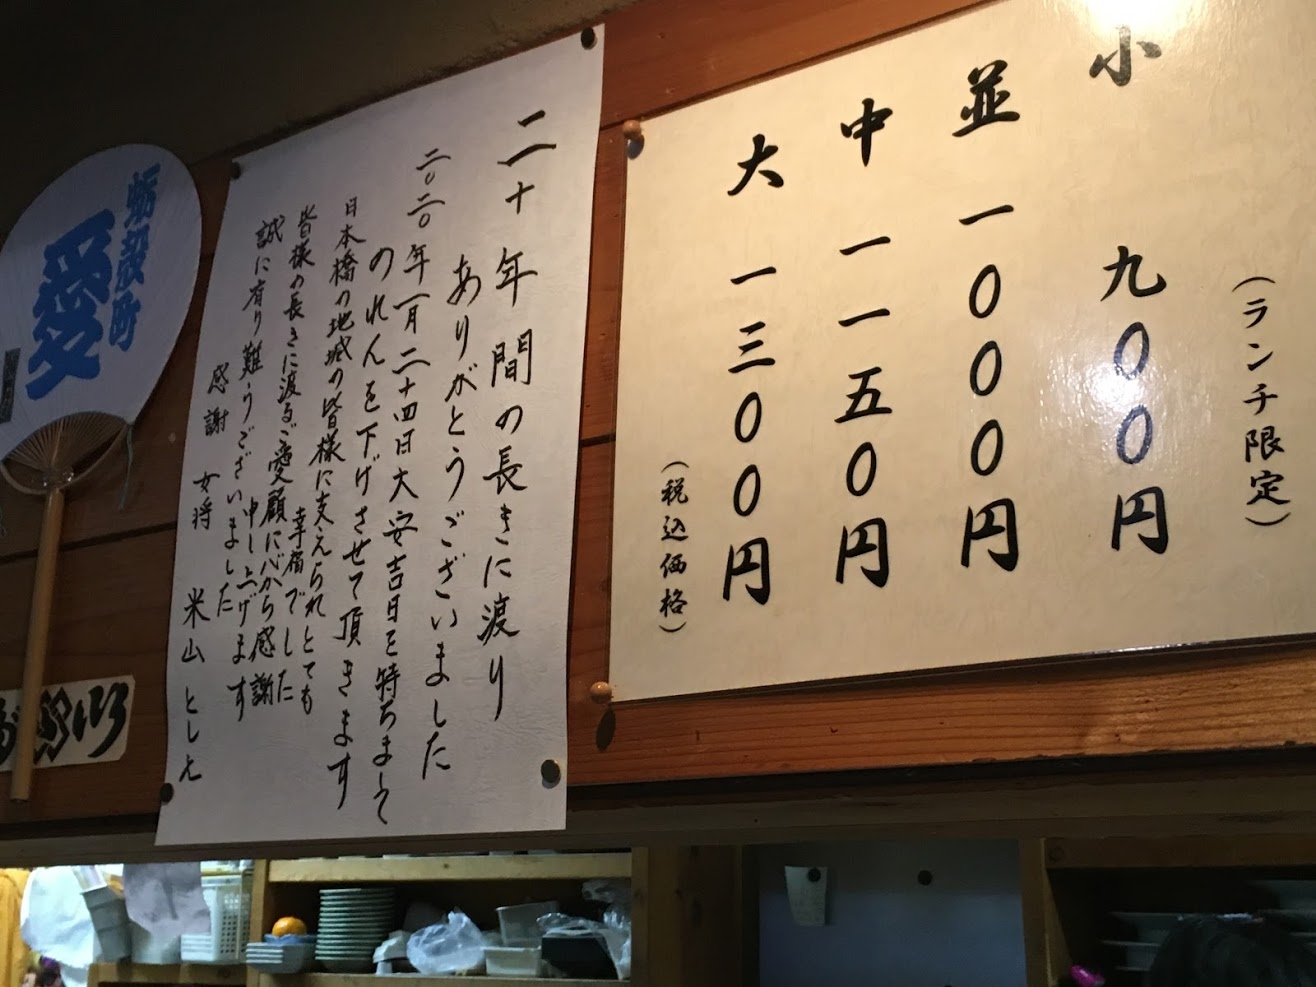 小 九〇〇円
(ランチ限定)
並 一〇〇〇円
中 一一五〇円
大 一三〇〇円
(税込価格)
二十年間の長きに渡り
ありがとうございました
二〇二〇年一月二十四日大安吉日を持ちまして
のれんを下げさせて頂きます
日本橋の地域の皆様に支えられとても
幸福でした
皆様の長きに渡るご愛顧に心から感謝
申し上げます
誠に有り難うございました
感謝
女将 米山 としえ
蛎殻町
愛